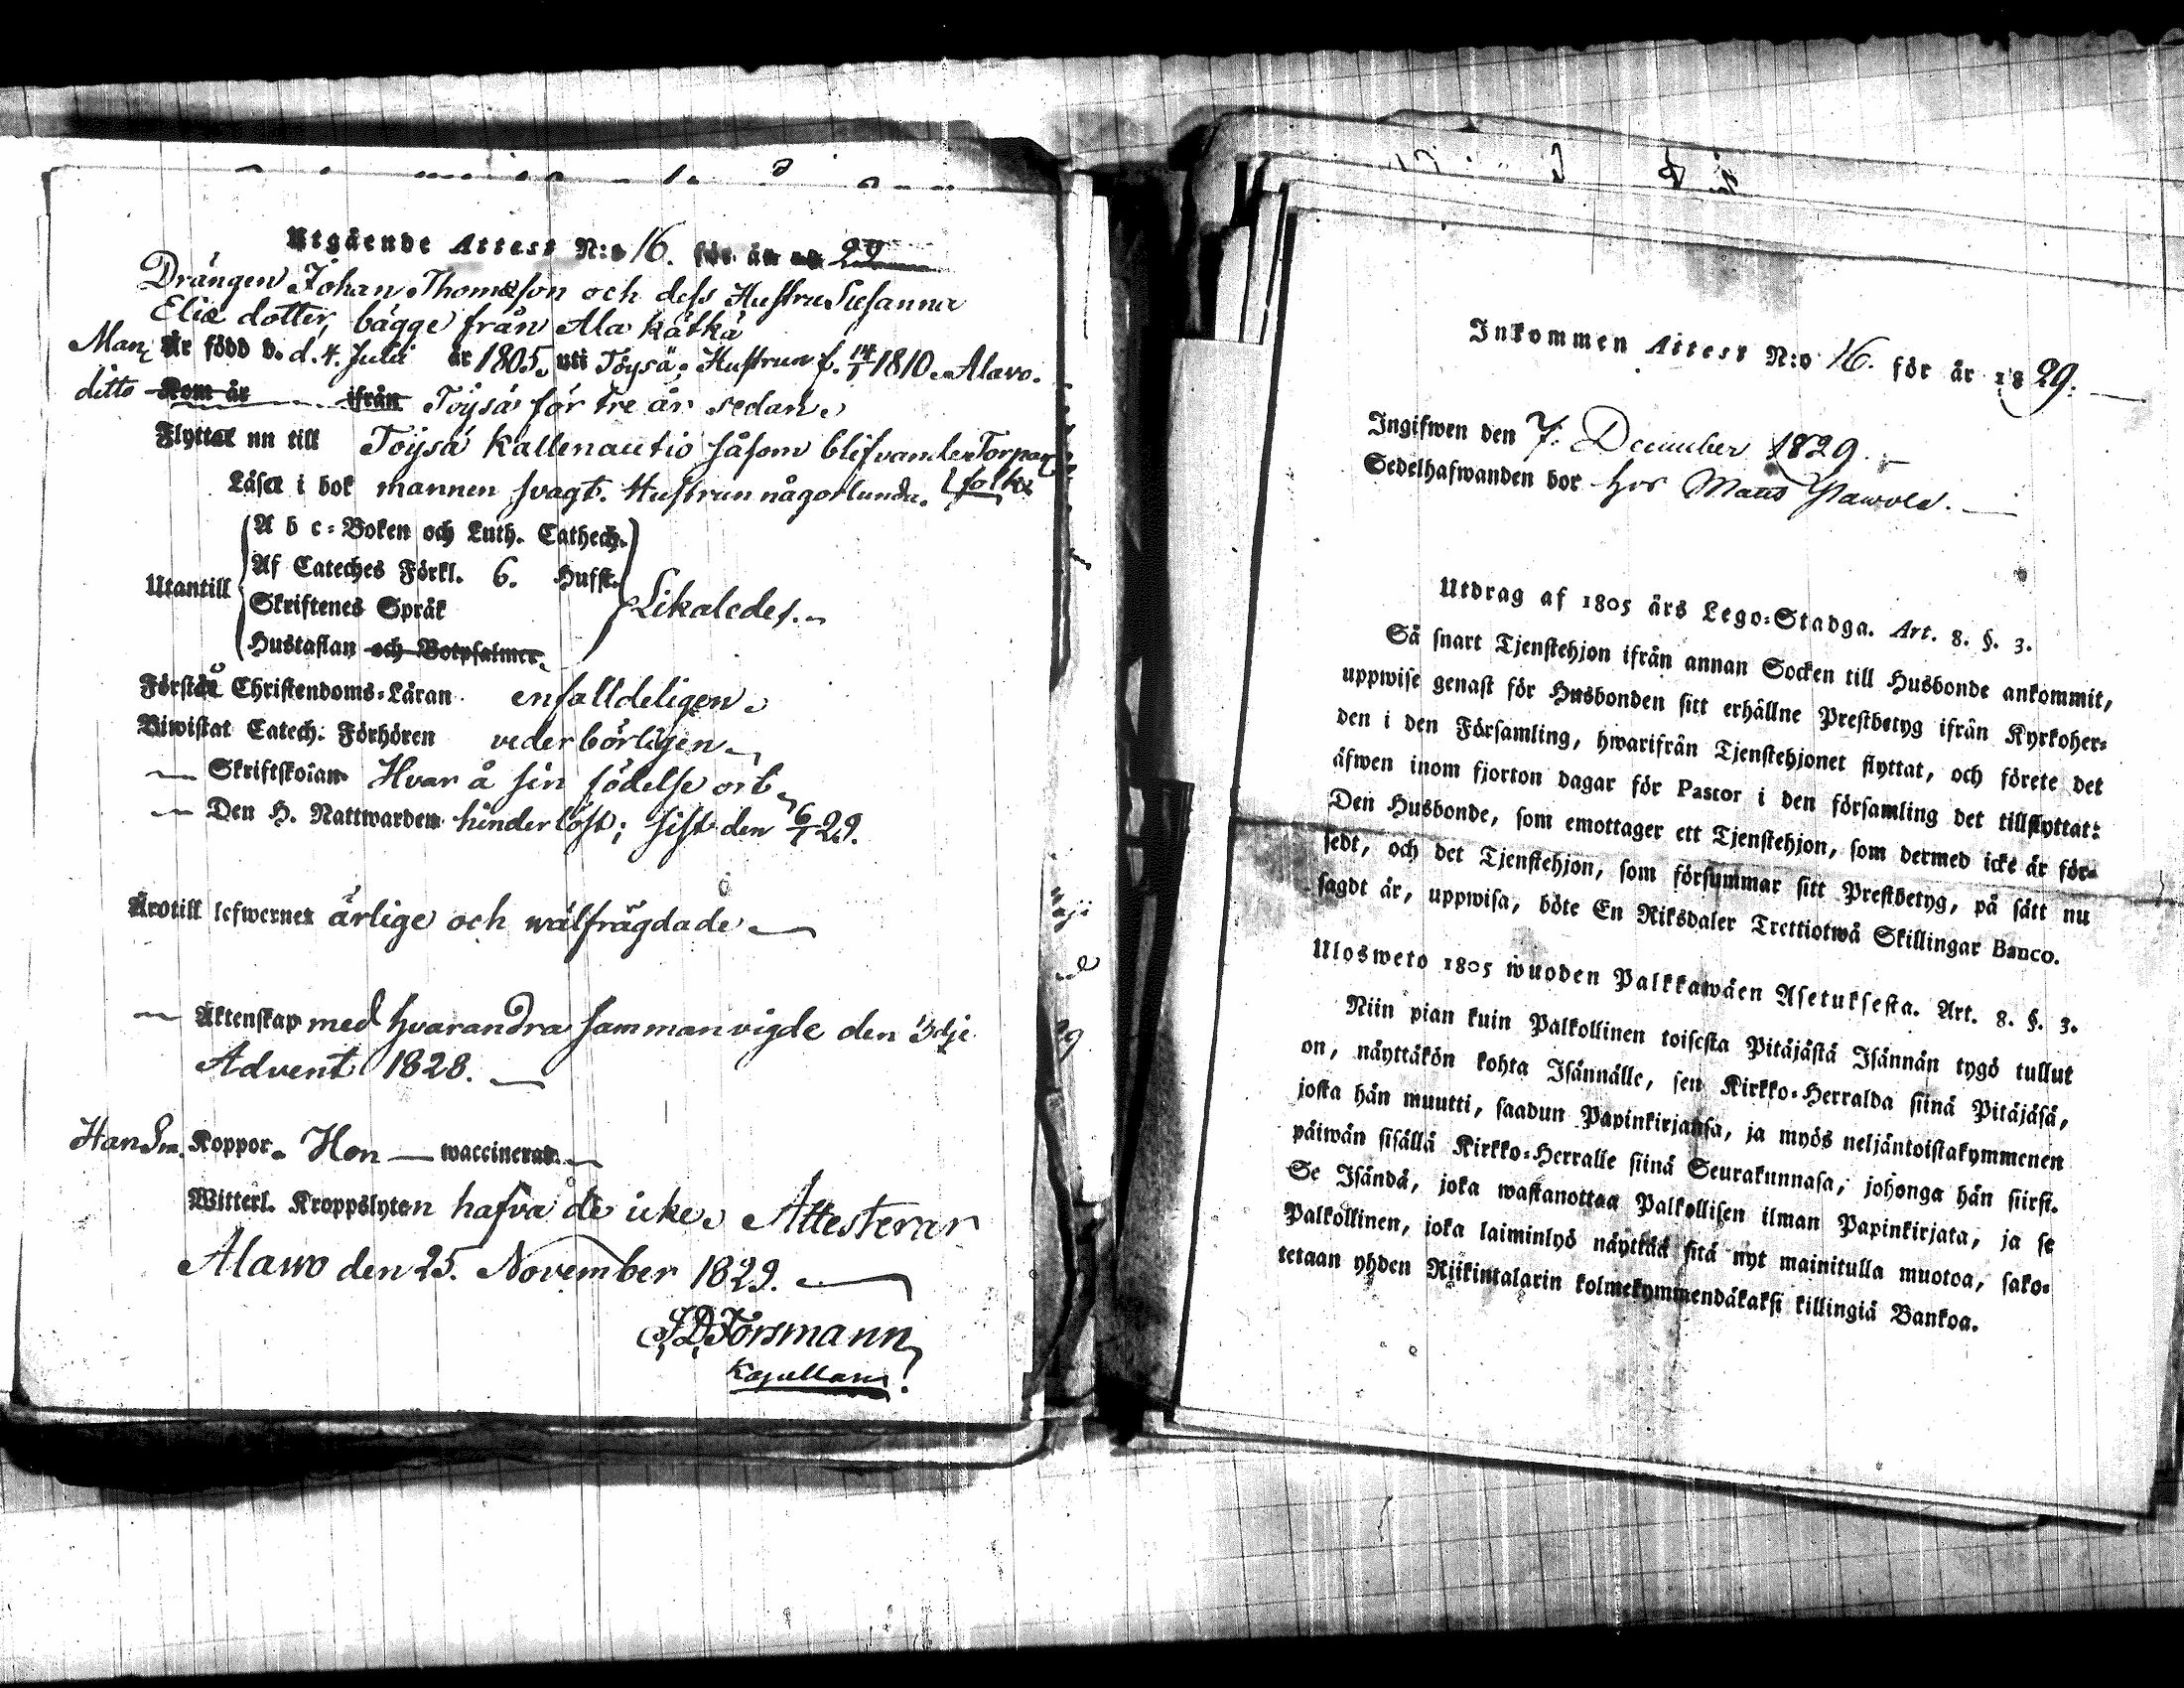 Utgående Attest N:o 16. för år 29
Drängen Johan Thomasson och dess Hustru Susanna
Eliæ dotter, bägge från Ala Kätkä
Man Är född d. d. 4. Julii år 1805. uti Töysä; Hustrun f. 14/1 1810. Alavo.
ditto Kom år ifrån Töysä för tre år sedan.
Flyttar nu till Töysä Kallenautio såsom blifvande Torpar
folk.
Läser i bok mannen svagt. Hustrun någorlunda.
A b c-Boken och Luth. Cathech.
Af Cateches Förkl. 6. Hufst.
Utantill
Skriftenes Språk
Likaledes.
Hustaflan och Botpsalmer.
Förstå Christendoms-Läran enfalldeligen.
Biwistat Catech. Förhören vederbörligen
— Skriftskolan Hvar å sin födelse ort
— Den H. Nattwarden hinderlöst; sist den 6/ 29.
Äro till lefwernet ärlige och wälfrägdade
— Äktenskap med hvarandra sammanvigde den 3dje
Advent 1828.
Han Koppor. Hon — waccinerad.
Witterl. Kroppslyten hafva de icke. Attesterar
Alawo den 25. November 1829.
J,D,Forsmann,
Kapellan.
Inkommen Attest N:o 16. för år 1829.
Ingifwen den 7. December 1829.
Sedelhafwanden bor hos Matts
Utdrag af 1805 års Lego-Stadga. Art. 8. §. 3.
Så snart Tjenstehjon ifrån annan Socken till Husbonde ankommit,
uppwise genast för Husbonden sitt erhållne Prestbetyg ifrån Kyrkoher-
den i den Församling, hwarifrån Tjenstehjonet flyttat, och förete det
äfwen inom fjorton dagar för Pastor i den församling det tillflyttat:
Den Husbonde, som emottager ett Tjenstehjon, som dermed icke är för-
sedt, och det Tjenstehjon, som försummar sitt Prestbetyg, på sätt nu
sagdt är, uppwisa, böte En Riksdaler Trettiotwå Skillingar Banco.
Ulosweto 1805 wuoden Palkkawäen Asetuksesta. Art. 8. §. 3.
Niin pian kuin Palkollinen toisesta Pitäjästä Isännän tygö tullut
on, näyttäkön kohta Isännälle, sen Kirkko-Herralda siinä Pitäjäsä,
josta hän muutti, saadun Papinkirjansa, ja myös neljäntoistakymmenen
päiwän sisällä Kirkko-Herralle siinä Seurakunnasa, johonga hän siirst.
Se Isändä, joka wastanottaa Palkollisen ilman Papinkirjata, ja se
Palkollinen, joka laiminlyö näyttää sitä nyt mainitulla muotoa, sako-
tetaan yhden Riikintalarin kolmekymmendäkaksi killingiä Bankoa.